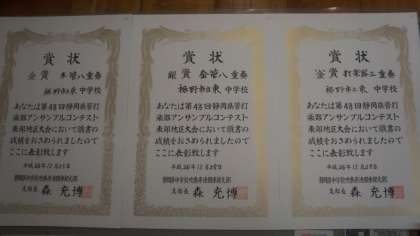 賞状
金賞 木管八重奏
裾野市立東中学校
あなたは第43回静岡県管打
楽器アンサンブルコンテスト
東部地区大会において頭書の
成績をおさめられましたので
ここに表彰致します
平成26年12月25日
支部長 森 充博
賞状
銀賞 金管八重奏
裾野市立東中学校
あなたは第43回静岡県管打
楽器アンサンブルコンテスト
東部地区大会において頭書の
成績をおさめられましたので
ここに表彰致します
平成26年12月25日
支部長 森 充博
賞状
金賞 打楽器三重奏
裾野市立東中学校
あなたは第43回静岡県管打
楽器アンサンブルコンテスト
東部地区大会において頭書の
成績をおさめられましたので
ここに表彰致します
支部長 森 充博